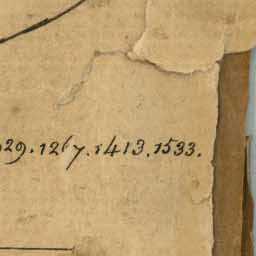 29. 1267. 1413. 1533.